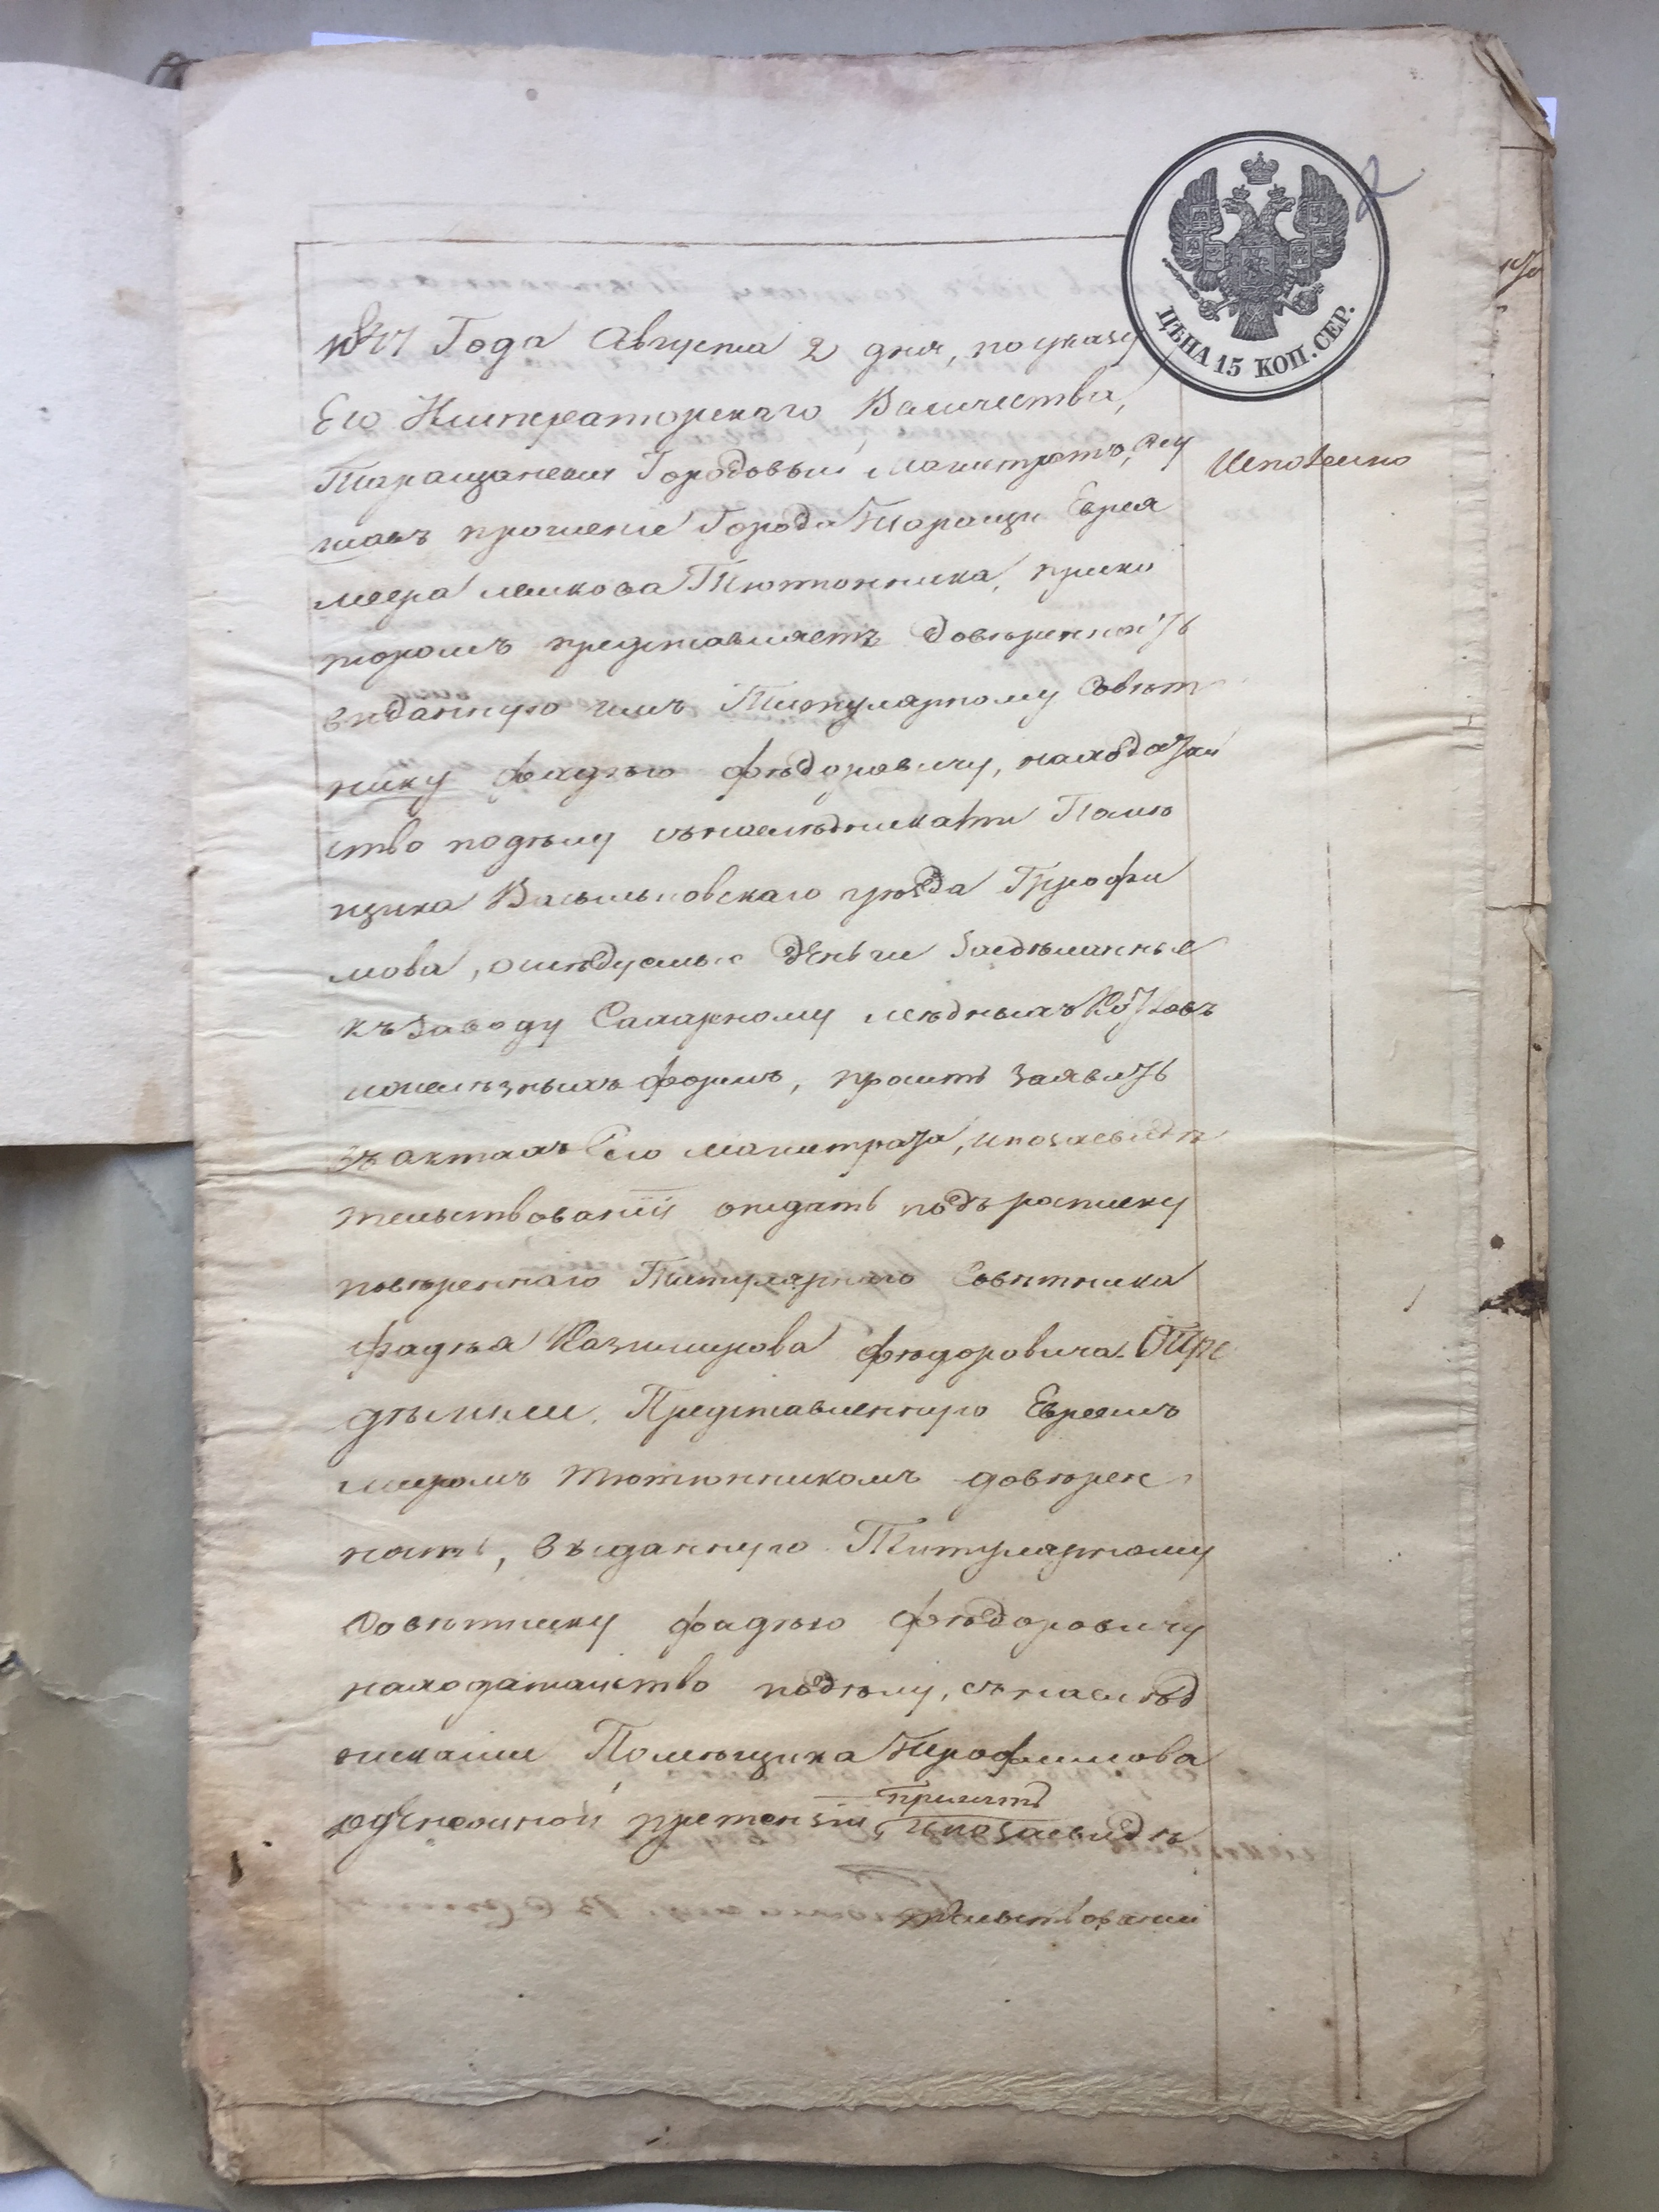 2
ЦѢНА 15 КОП. СЕР.
1847 Года Августа 2 дня, по указу
Его Императорскаго Величества,
Таращанскій Городовый Магистратъ, слу
шавъ прошеніе Города Таращи Еврея
Меера Лейкова Тютюнника, при ко
торомъ представляетъ довѣренность
выданную имъ Титулярному Совѣт
нику Фадѣю Фѣдоровичу, на ходатай
ство по дѣлу съ наслѣдниками Помѣ
щика Васильковскаго уѣзда Трофи
мова, о слѣдуемыхъ деньги за сдѣланные
къ заводу Сахарному мѣдныхъ Котловъ
и желѣзныхъ формъ, проситъ заявить
въ актахъ сего Магистрата, и по засвидѣ
тельствованіи отдать подъ росписку
повѣреннаго Титулярнаго Совѣтника
Фадѣя Казимирова Фѣдоровича. Опре
дѣлили. Представленную Евреемъ
Мееромъ Тютюнникомъ довѣрен
ность, выданную Титулярному
Совѣтнику Фадѣю Фѣдоровичу
на ходатайство по дѣлу, съ наслѣд
никами Помѣщика Трофимова
о денежной претензіи, принять
и по засвидѣ
тельствованіи
Исполнено